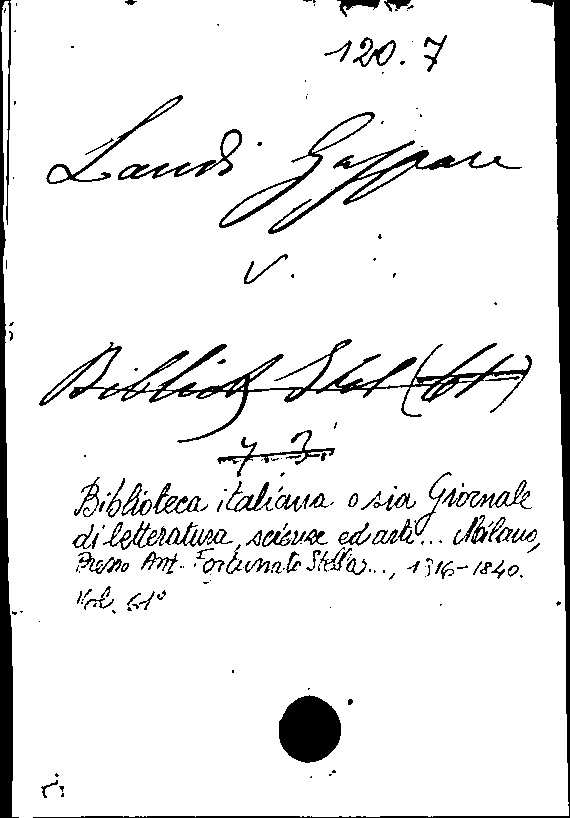 120.7
Landi Gaspare
V.
Bibliot Ital (61)
7.3.
Biblioteca italiana o sia Giornale
di letteratura, scienze ed arti... Milano,
Presso Ant. Fortunato Stella..., 1816-1840.
Vol. 61°